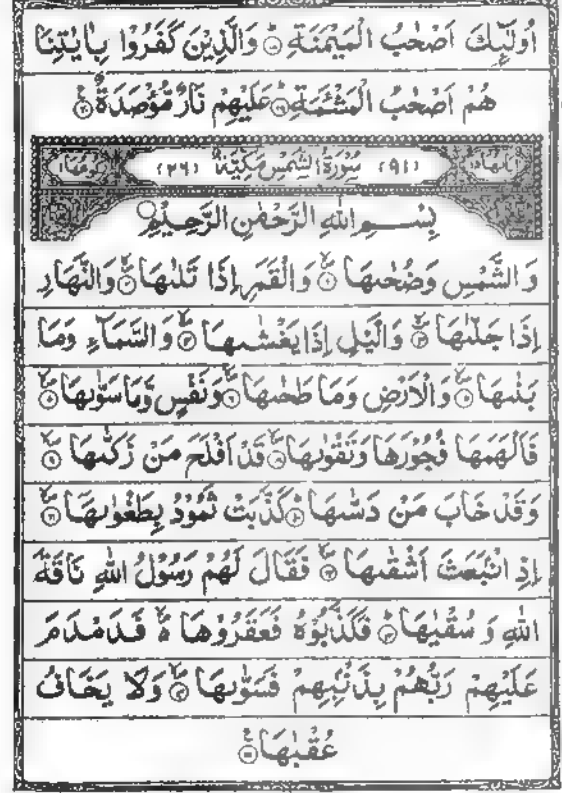 اُولٰٓئِكَ اَصْحٰبُ الْمَيْمَنَةِ ۟ؕ۱۸ وَالَّذِيْنَ كَفَرُوْا بِاٰيٰتِنَا
هُمْ اَصْحٰبُ الْمَشْـَٔمَةِ ۟ؕ۱۹ عَلَيْهِمْ نَارٌ مُّؤْصَدَةٌ ۟۠۲۰
(۹۱) سُوْرَةُ الشَّمْسِ مَكِّيَّةٌ (۲۶)
بِسْمِ اللّٰهِ الرَّحْمٰنِ الرَّحِيْمِ
وَالشَّمْسِ وَضُحٰىهَا ۟ۙ۱ وَالْقَمَرِ اِذَا تَلٰىهَا ۟ۙ۲ وَالنَّهَارِ
اِذَا جَلّٰىهَا ۟ۙ۳ وَالَّيْلِ اِذَا يَغْشٰىهَا ۟ۙ۴ وَالسَّمَآءِ وَمَا
بَنٰىهَا ۟ۙ۵ وَالْاَرْضِ وَمَا طَحٰىهَا ۟ۙ۶ وَنَفْسٍ وَّمَا سَوّٰىهَا ۟ۙ۷
فَاَلْهَمَهَا فُجُوْرَهَا وَتَقْوٰىهَا ۟ۙ۸ قَدْ اَفْلَحَ مَنْ زَكّٰىهَا ۟ۙ۹
وَقَدْ خَابَ مَنْ دَسّٰىهَا ۟ؕ۱۰ كَذَّبَتْ ثَمُوْدُ بِطَغْوٰىهَاۤ ۟ۙ۱۱
اِذِ انْۢبَعَثَ اَشْقٰىهَا ۟ۙ۱۲ فَقَالَ لَهُمْ رَسُوْلُ اللّٰهِ نَاقَةَ
اللّٰهِ وَسُقْيٰهَا ۟ؕ۱۳ فَكَذَّبُوْهُ فَعَقَرُوْهَا ۪ۙ فَدَمْدَمَ
عَلَيْهِمْ رَبُّهُمْ بِذَنْۢبِهِمْ فَسَوّٰىهَا ۟ۙ۱۴ وَلَا يَخَافُ
عُقْبٰهَا ۟۠۱۵